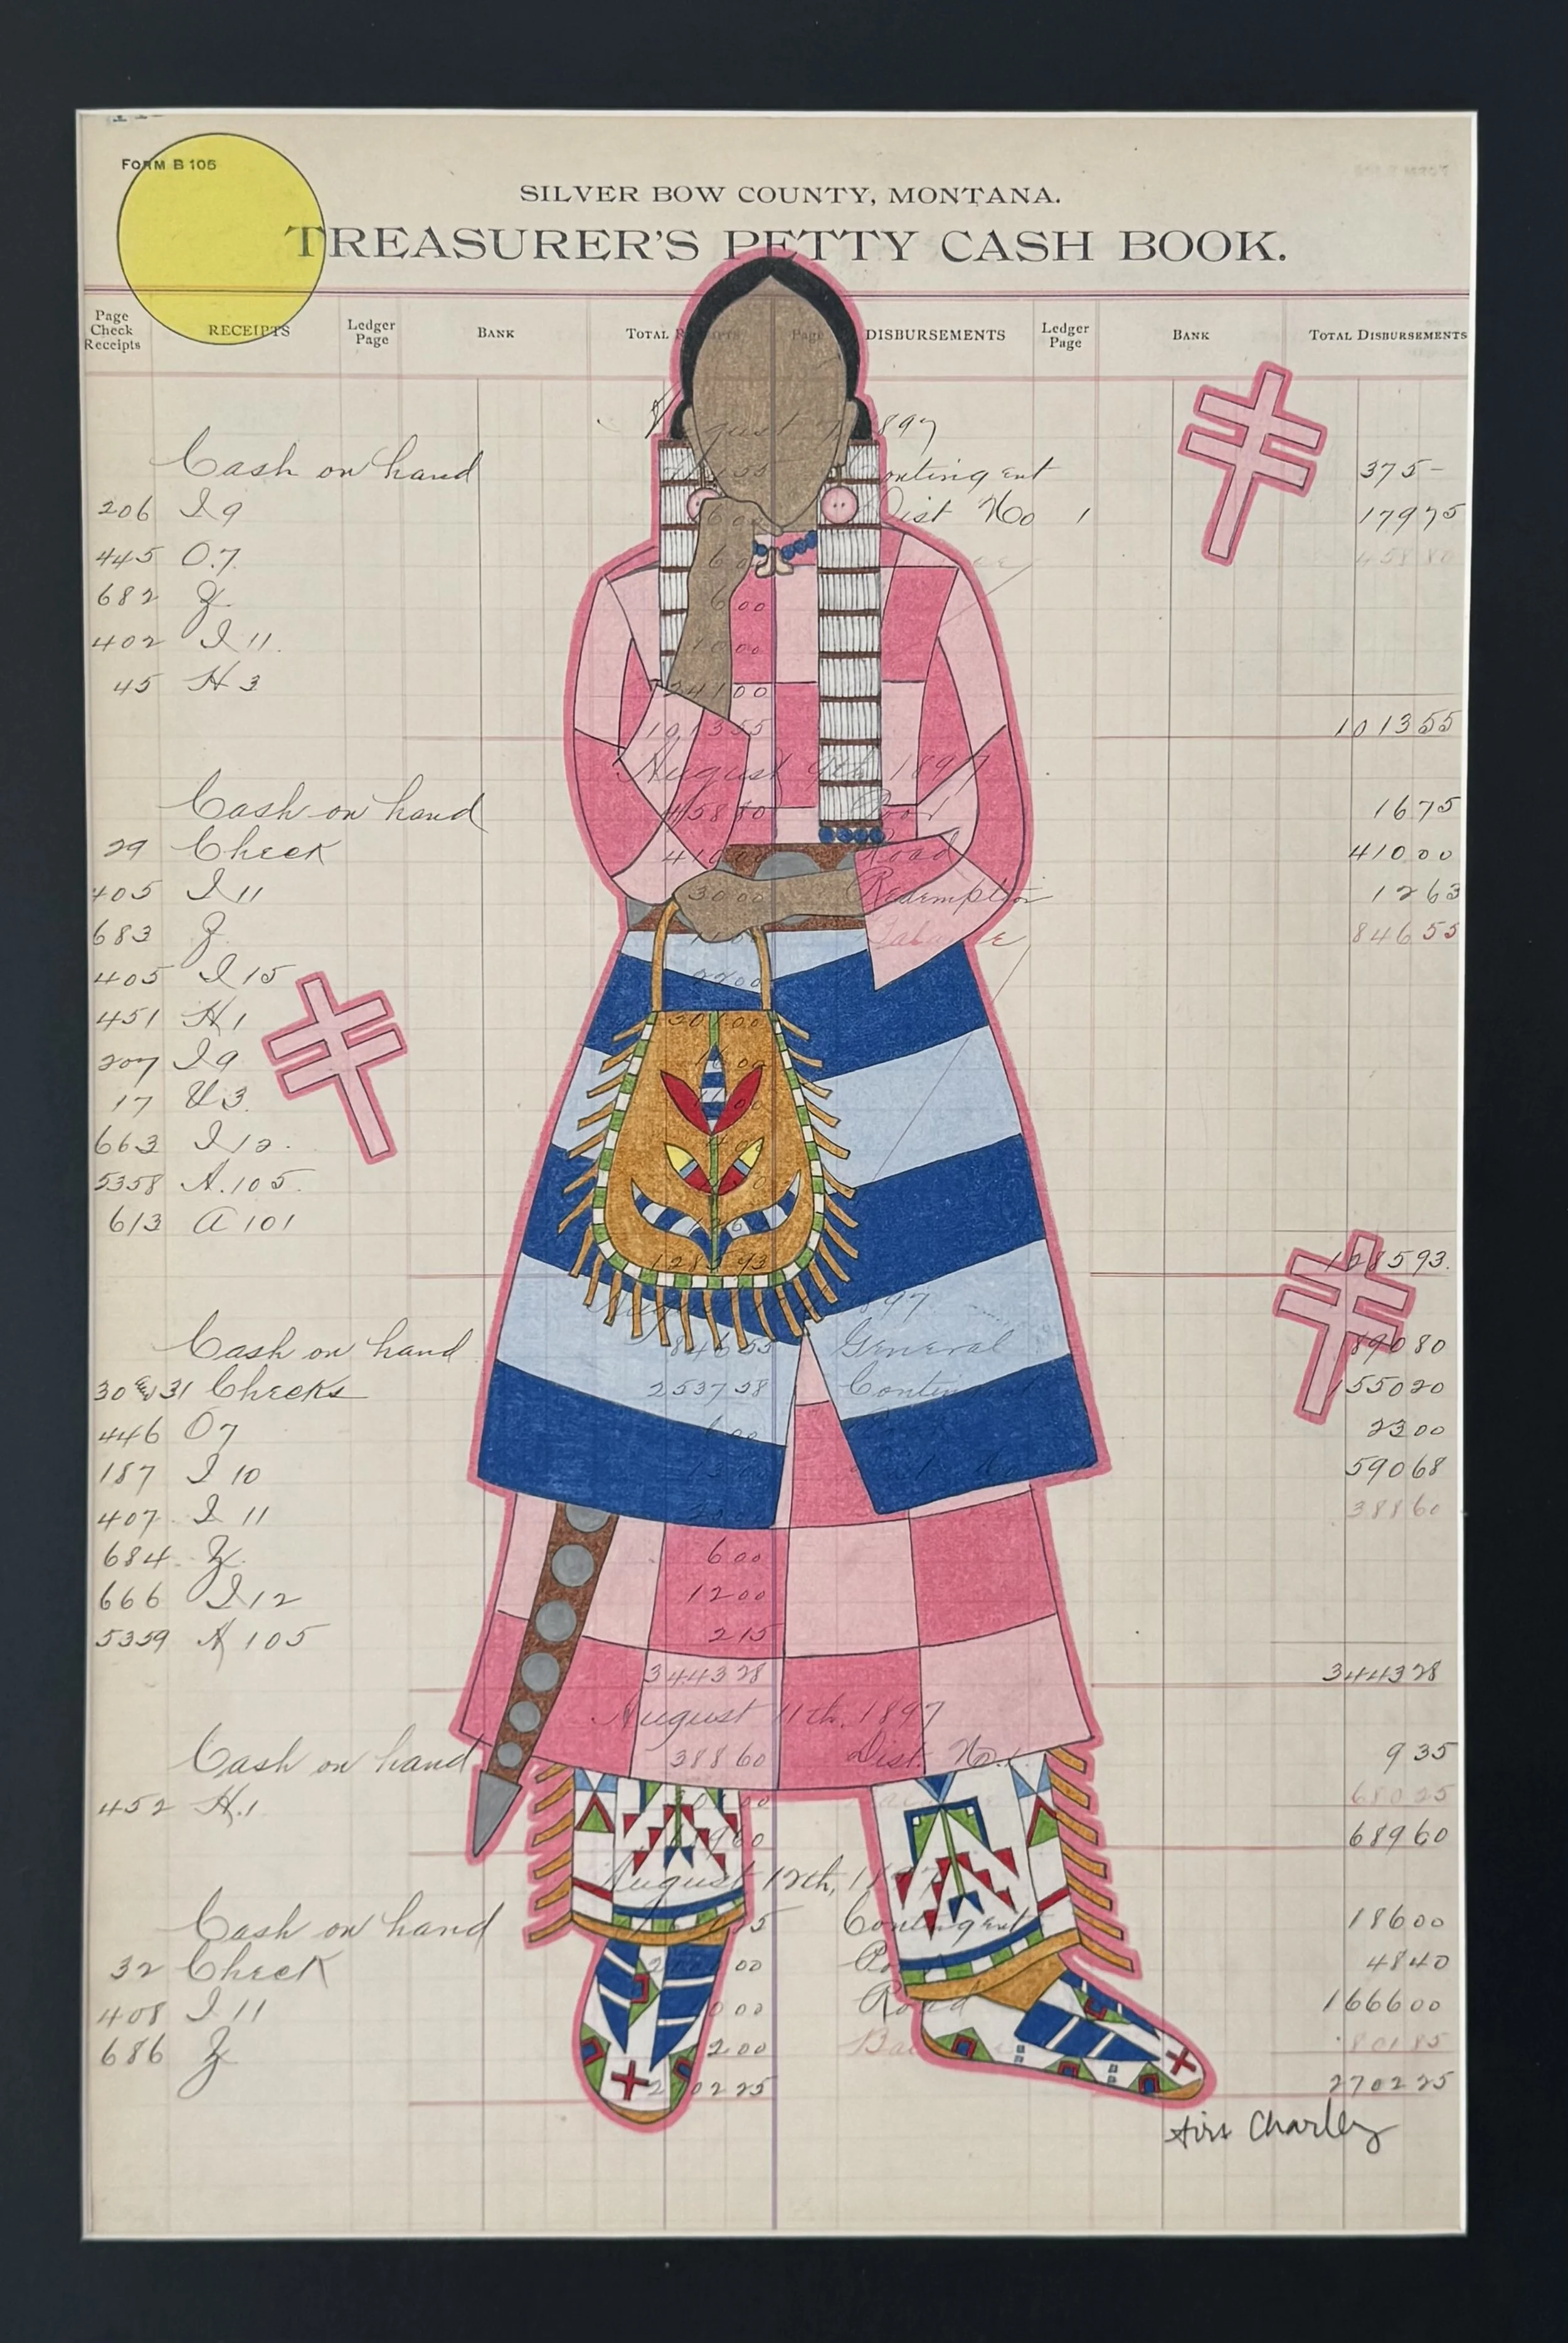 FORM B 105
SILVER BOW COUNTY, MONTANA.
TREASURER'S PETTY CASH BOOK.
Page Check Receipts RECEIPTS Ledger Page BANK TOTAL Receipts Page DISBURSEMENTS Ledger Page BANK TOTAL DISBURSEMENTS
August 1897
Cash on hand Contingent 375-
206 I 9 Dist No 1 17975
445 O.7. 600 45880
682 600
402 I 11. 1000
45 H 3 24100
101355 101355
August 9th 1897
Cash on hand 45880 Poor 1675
29 Check 41000 Road 41000
405 I 11 3000 Redemption 1263
683 Balance 84655
405 I 15 2200
451 H 1 30100
207 I 9
17 U 3.
663 I 12.
5358 A.105.
613 A 101
128593 128593.
August 1897
Cash on hand 84655 General 89080
30 & 31 Checks 253728 Contin 155020
446 O 7 600 2300
187 I 10 59068
407 I 11 38860
684 600
666 I 12 1200
5359 A 105 215
344328 344328
August 11th, 1897
Cash on hand 38860 Dist. No. 1 935
452 H.1 68025
68960
August 12th, 1897
Cash on hand Contingent 18600
32 Check 00 4840
408 I 11 Road 166600
686 200 Ba 80185
270225 270225
Charley